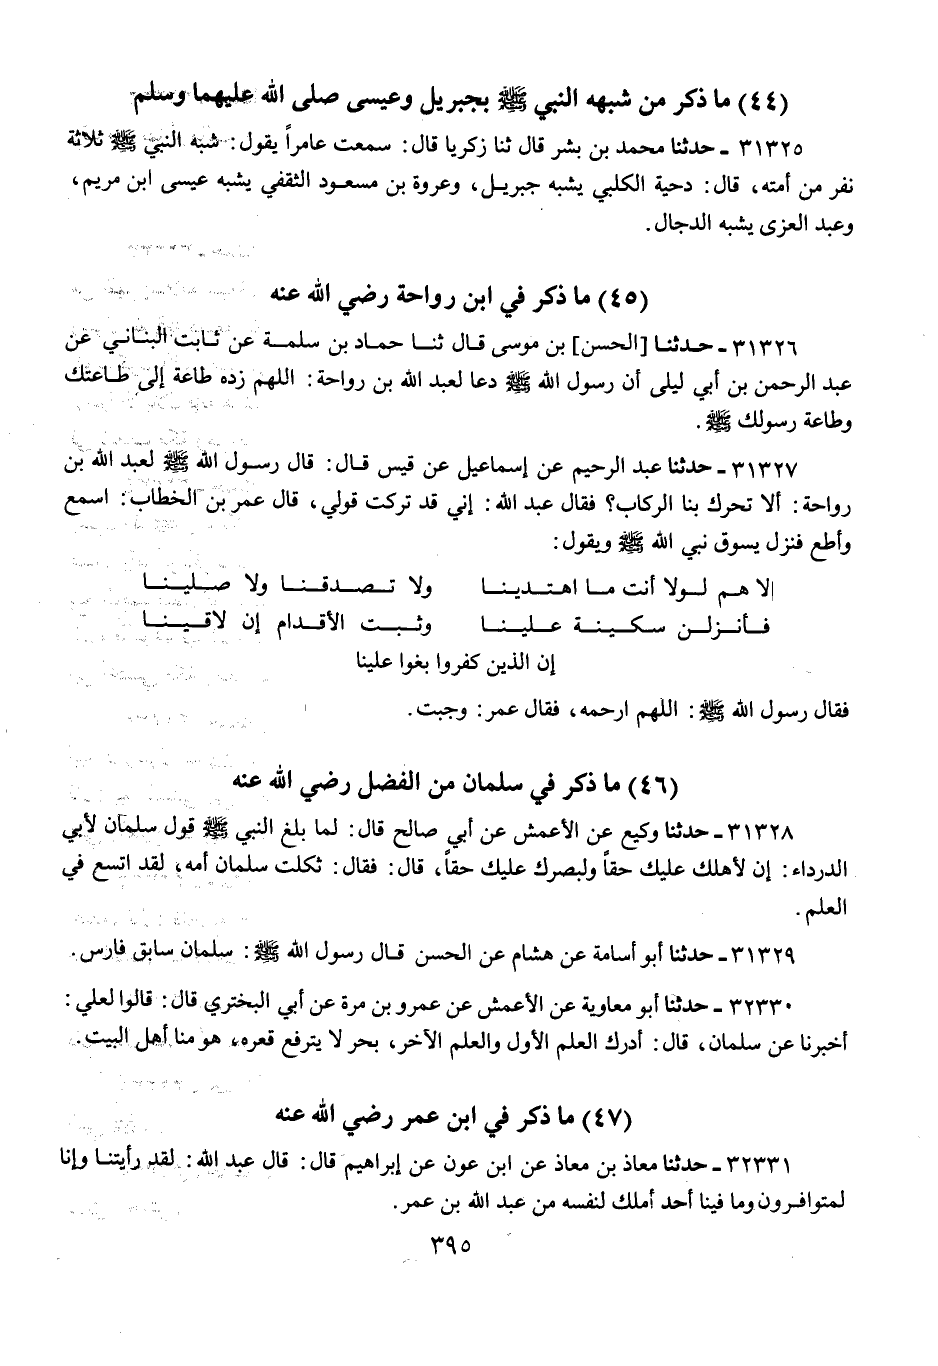 (٤٤) ما ذكر من شبهه النبي ﷺ بجبريل وعيسى صلى الله عليهما وسلم
٣١٣٢٥ ـ حدثنا محمد بن بشر قال ثنا زكريا قال: سمعت عامراً يقول: شبه النبي ﷺ ثلاثة
نفر من أمته، قال: دحية الكلبي يشبه جبريل، وعروة بن مسعود الثقفي يشبه عيسى ابن مريم،
وعبد العزى يشبه الدجال.
(٤٥) ما ذكر في ابن رواحة رضي الله عنه
٣١٣٢٦ ـ حدثنا [الحسن] بن موسى قال ثنا حماد بن سلمة عن ثابت البناني عن
عبد الرحمن بن أبي ليلى أن رسول الله ﷺ دعا لعبد الله بن رواحة: اللهم زده طاعة إلى طاعتك
وطاعة رسولك ﷺ.
٣١٣٢٧ ـ حدثنا عبد الرحيم عن إسماعيل عن قيس قال: قال رسول الله ﷺ لعبد الله بن
رواحة: ألا تحرك بنا الركاب؟ فقال عبد الله: إني قد تركت قولي، قال عمر بن الخطاب: اسمع
وأطع فنزل يسوق نبي الله ﷺ ويقول:
الا هم لولا أنت ما اهتدينا ولا تصدقنا ولا صلينا
فأنزلن سكينة علينا وثبت الأقدام إن لاقينا
إن الذين كفروا بغوا علينا
فقال رسول الله ﷺ: اللهم ارحمه، فقال عمر: وجبت.
(٤٦) ما ذكر في سلمان من الفضل رضي الله عنه
٣١٣٢٨ ـ حدثنا وكيع عن الأعمش عن أبي صالح قال: لما بلغ النبي ﷺ قول سلمان لأبي
الدرداء: إن لأهلك عليك حقاً ولبصرك عليك حقاً، قال: فقال: ثكلت سلمان أمه، لقد اتسع في
العلم.
٣١٣٢٩ ـ حدثنا أبو أسامة عن هشام عن الحسن قال رسول الله ﷺ: سلمان سابق فارس.
٣٢٣٣٠ ـ حدثنا أبو معاوية عن الأعمش عن عمرو بن مرة عن أبي البختري قال: قالوا لعلي:
أخبرنا عن سلمان، قال: أدرك العلم الأول والعلم الآخر، بحر لا يترفع قعره، هو منا أهل البيت.
(٤٧) ما ذكر في ابن عمر رضي الله عنه
٣٢٣٣١ ـ حدثنا معاذ بن معاذ عن ابن عون عن إبراهيم قال: قال عبد الله: لقد رأيتنا وإنا
لمتوافرون وما فينا أحد أملك لنفسه من عبد الله بن عمر.
٣٩٥